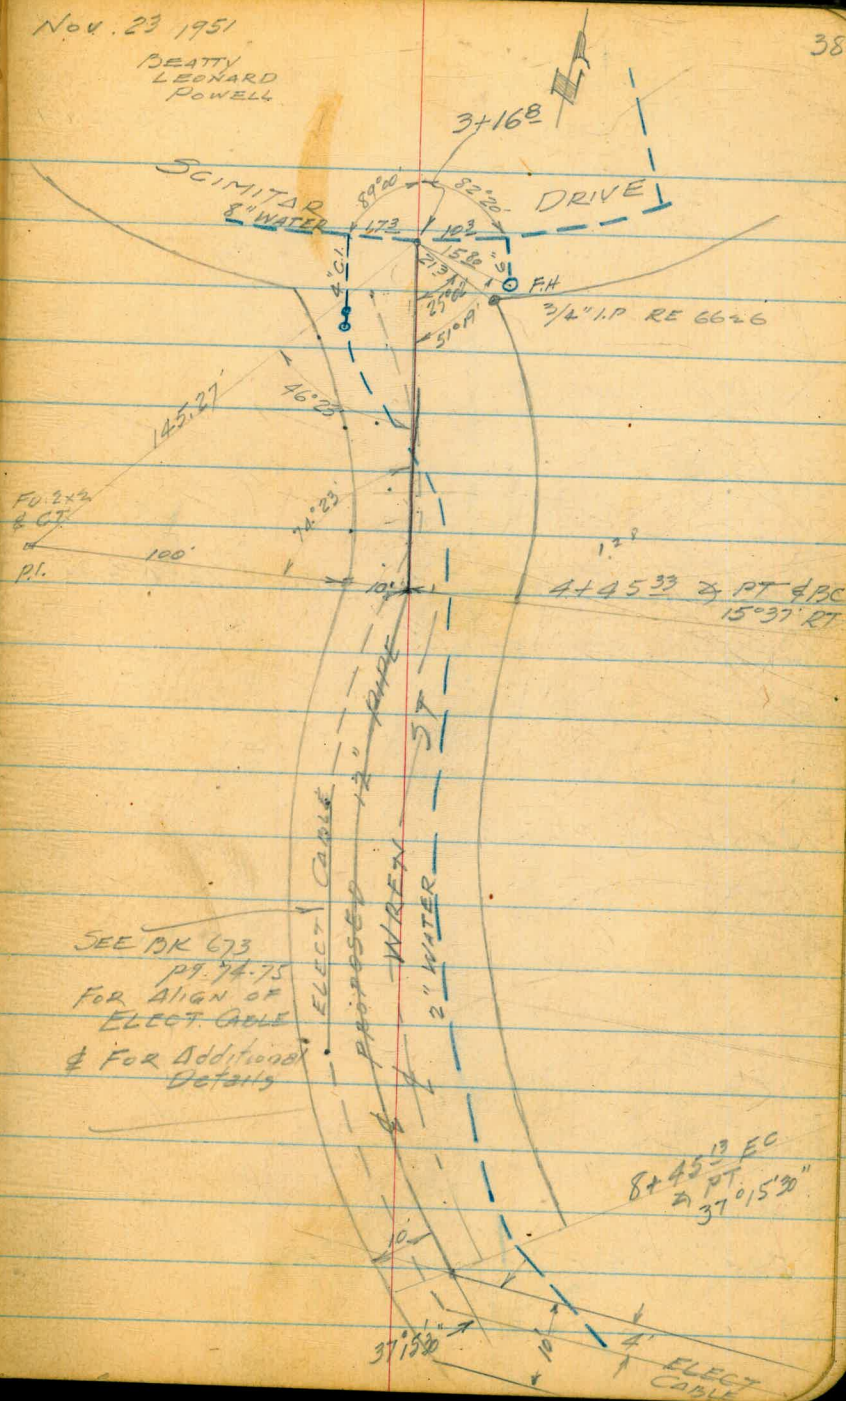 Nov. 23 1951
38
BEATTY
LEONARD
POWELL
3+16⁸
SCIMITAR
DRIVE
89°00'
82°20'
8" WATER
17³
10³
15⁸⁰
21.3
4" C.I.
F.H
3/4" I.P RE 6626
51°19'
46°23'
145.27'
74°23'
FD. 2x2
& GT
P.I.
100'
10'
4+45³³ PT & BC
15°37' RT
ELECT CABLE
PROPOSED 12" PIPE
WREN ST
2" WATER
SEE BK 673
Pg. 74-75
FOR ALIGN OF
ELECT. CABLE
& FOR Additional
Details
8+45¹³ EC
PT.
37°15'30"
10'
37°15'30"
10'
4'
ELECT
CABLE